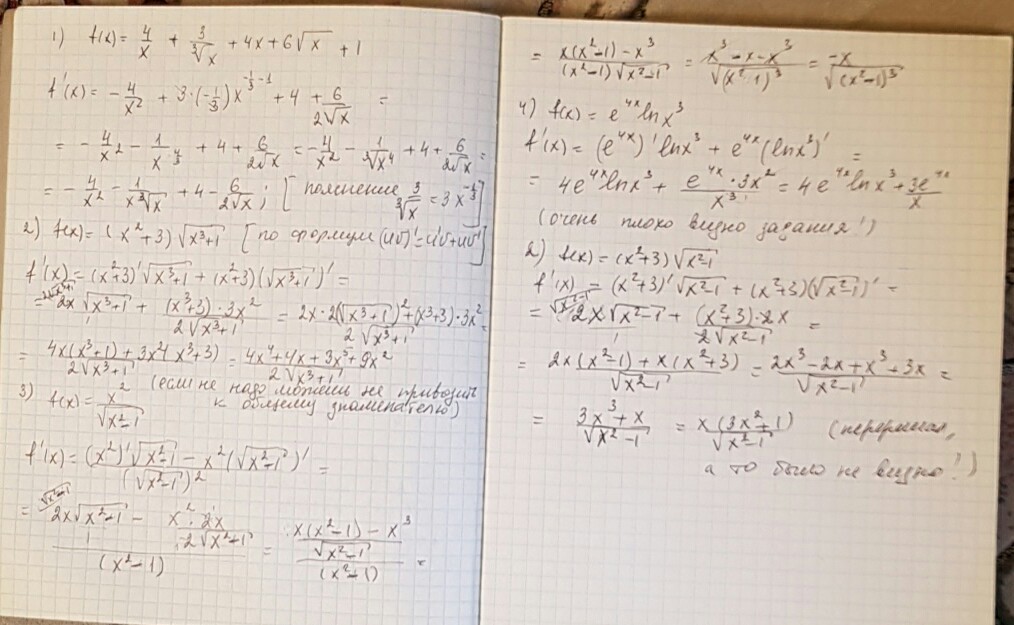 1) f(x) = 4/x + 3/∛x + 4x + 6√x + 1
f'(x) = -4/x² + 3·(-1/3)x^(-1/3 - 1) + 4 + 6/(2√x) =
= -4/x² - 1/x^(4/3) + 4 + 6/(2√x) = -4/x² - 1/∛(x⁴) + 4 + 6/(2√x) =
= -4/x² - 1/(x∛x) + 4 - 6/(2√x); [пояснение 3/∛x = 3x^(-1/3)]
2) f(x) = (x²+3)√(x³+1) [по формуле (uv)' = u'v + uv']
f'(x) = (x²+3)'√(x³+1) + (x²+3)(√(x³+1))' =
= 2x√(x³+1)/1 + (x³+3)·3x²/(2√(x³+1)) = (2x·2(√(x³+1))² + (x³+3)·3x²)/(2√(x³+1)) =
= (4x(x³+1) + 3x²(x³+3))/(2√(x³+1)) = (4x⁴+4x+3x⁵+9x²)/(2√(x³+1))
(если не надо можешь не приводить
к общему знаменателю)
3) f(x) = x²/√(x²-1)
f'(x) = ((x²)'√(x²-1) - x²(√(x²-1))')/(√(x²-1))² =
= (2x√(x²-1)/1 - x²·2x/(2√(x²-1)))/(x²-1) = ((x(x²-1) - x³)/√(x²-1))/(x²-1) =
= (x(x²-1) - x³)/((x²-1)√(x²-1)) = (x³-x-x³)/√((x²-1)³) = -x/√((x²-1)³)
4) f(x) = e^(4x) ln x³
f'(x) = (e^(4x))' ln x³ + e^(4x)(ln x³)' =
= 4e^(4x) ln x³ + e^(4x)·3x²/x³ = 4e^(4x) ln x³ + 3e^(4x)/x
(очень плохо видно задания!)
2) f(x) = (x²+3)√(x²-1)
f'(x) = (x²+3)'√(x²-1) + (x²+3)(√(x²-1))' =
= 2x√(x²-1)/1 + (x²+3)·2x/(2√(x²-1)) =
= (2x(x²-1) + x(x²+3))/√(x²-1) = (2x³-2x+x³+3x)/√(x²-1) =
= (3x³+x)/√(x²-1) = x(3x²+1)/√(x²-1) (перерешал,
а то было не видно!)